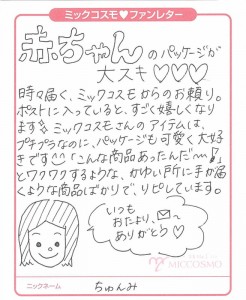 ミックコスモ♥ファンレター
赤ちゃんのパッケージが
大スキ♡♡♡
時々届く、ミックコスモからのお頼り。
ポストに入っていると、すごく嬉しくなり
ます。ミックコスモさんのアイテムは、
プチプラなのに、パッケージも可愛く大好
きです。「こんな商品あったんだ〜!」
とワクワクするような、かゆい所に手が届
くような商品ばかりで、リピしています。
いつも
おたより、
ありがとう♡
MICCOSMO
ニックネーム ちゅんみ